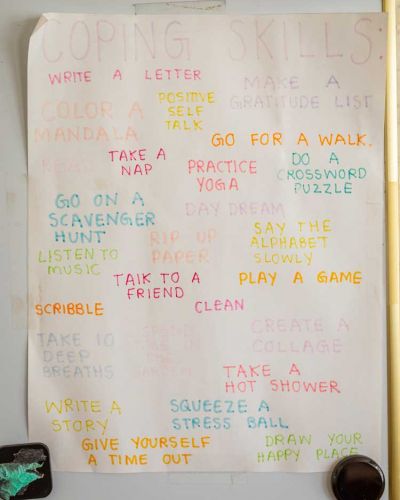 COPING SKILLS:
WRITE A LETTER
MAKE A
GRATITUDE LIST
POSITIVE
SELF
TALK
COLOR A
MANDALA
GO FOR A WALK.
READ
TAKE A
NAP
PRACTICE
YOGA
DO A
CROSSWORD
PUZZLE
GO ON A
SCAVENGER
HUNT
DAY DREAM
RIP UP
PAPER
SAY THE
ALPHABET
SLOWLY
LISTEN TO
MUSIC
TALK TO A
FRIEND
PLAY A GAME
SCRIBBLE
CLEAN
TAKE 10
DEEP
BREATHS
SPEND
TIME IN
THE
GARDEN
CREATE A
COLLAGE
TAKE A
HOT SHOWER
WRITE A
STORY
SQUEEZE A
STRESS BALL
GIVE YOURSELF
A TIME OUT
DRAW YOUR
HAPPY PLACE